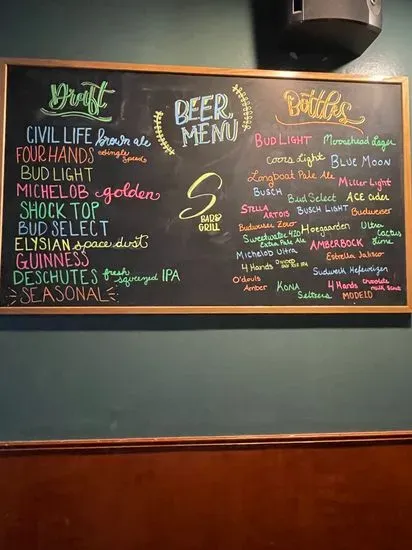 Draft
CIVIL LIFE brown ale
FOUR HANDS
BUD LIGHT
MICHELOB golden
SHOCK TOP
BUD SELECT
ELYSIAN space dust
GUINNESS
DESCHUTES fresh squeezed IPA
SEASONAL
BEER
MENU
S
BAR &
GRILL
Bottles
BUD LIGHT Moosehead Lager
Coors Light BLUE MOON
Longboat Pale Ale Miller Light
BUSCH Bud Select ACE Cider
STELLA ARTOIS BUSCH LIGHT Budweiser
Budweiser Zero Hoegarden Ultra
Sweetwater 420 Extra Pale Ale AMBERBOCK Cactus Lime
Michelob Ultra Estrella Jalisco
4 Hands IPA Sudwerk Hefeweizen
O'douls Amber KONA 4 Hands chocolate milk stout
Seltzers MODELO